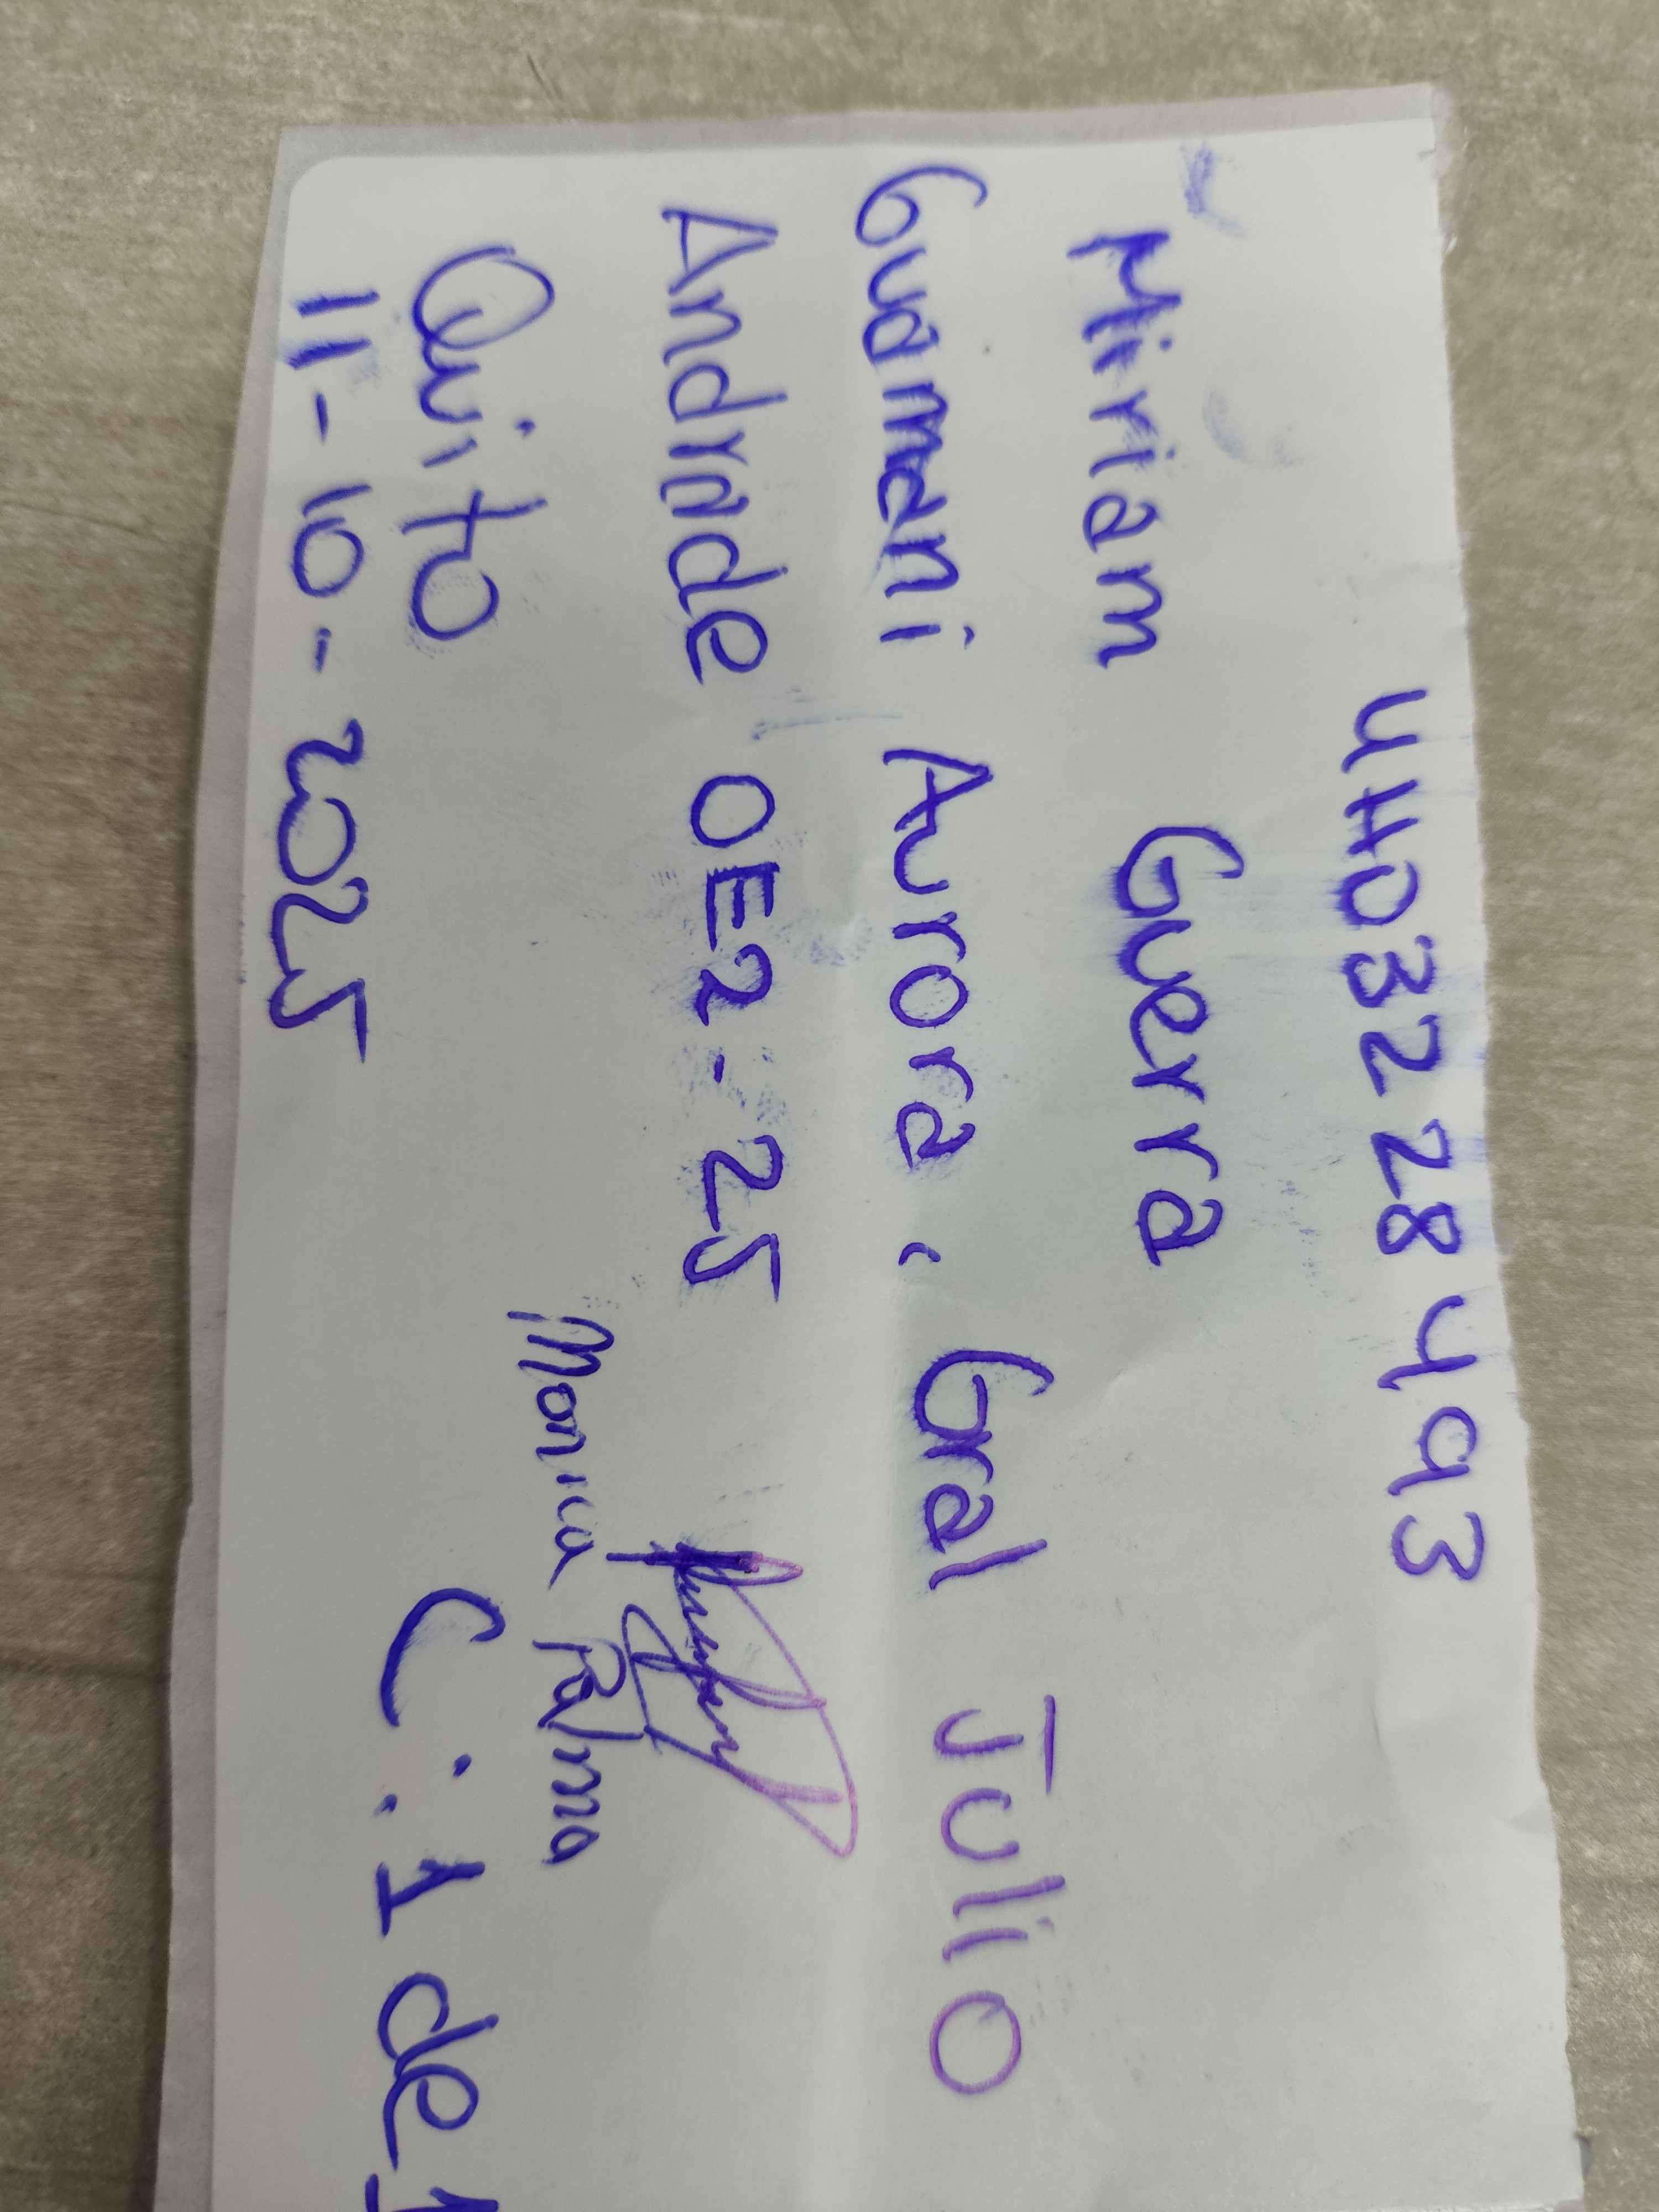 4H032 28493
Miriam Guerra
Guamani Aurora. Gral Julio
Andrade OE2-25
Monica Palma
Quito C:1 de 1
11-10-2025